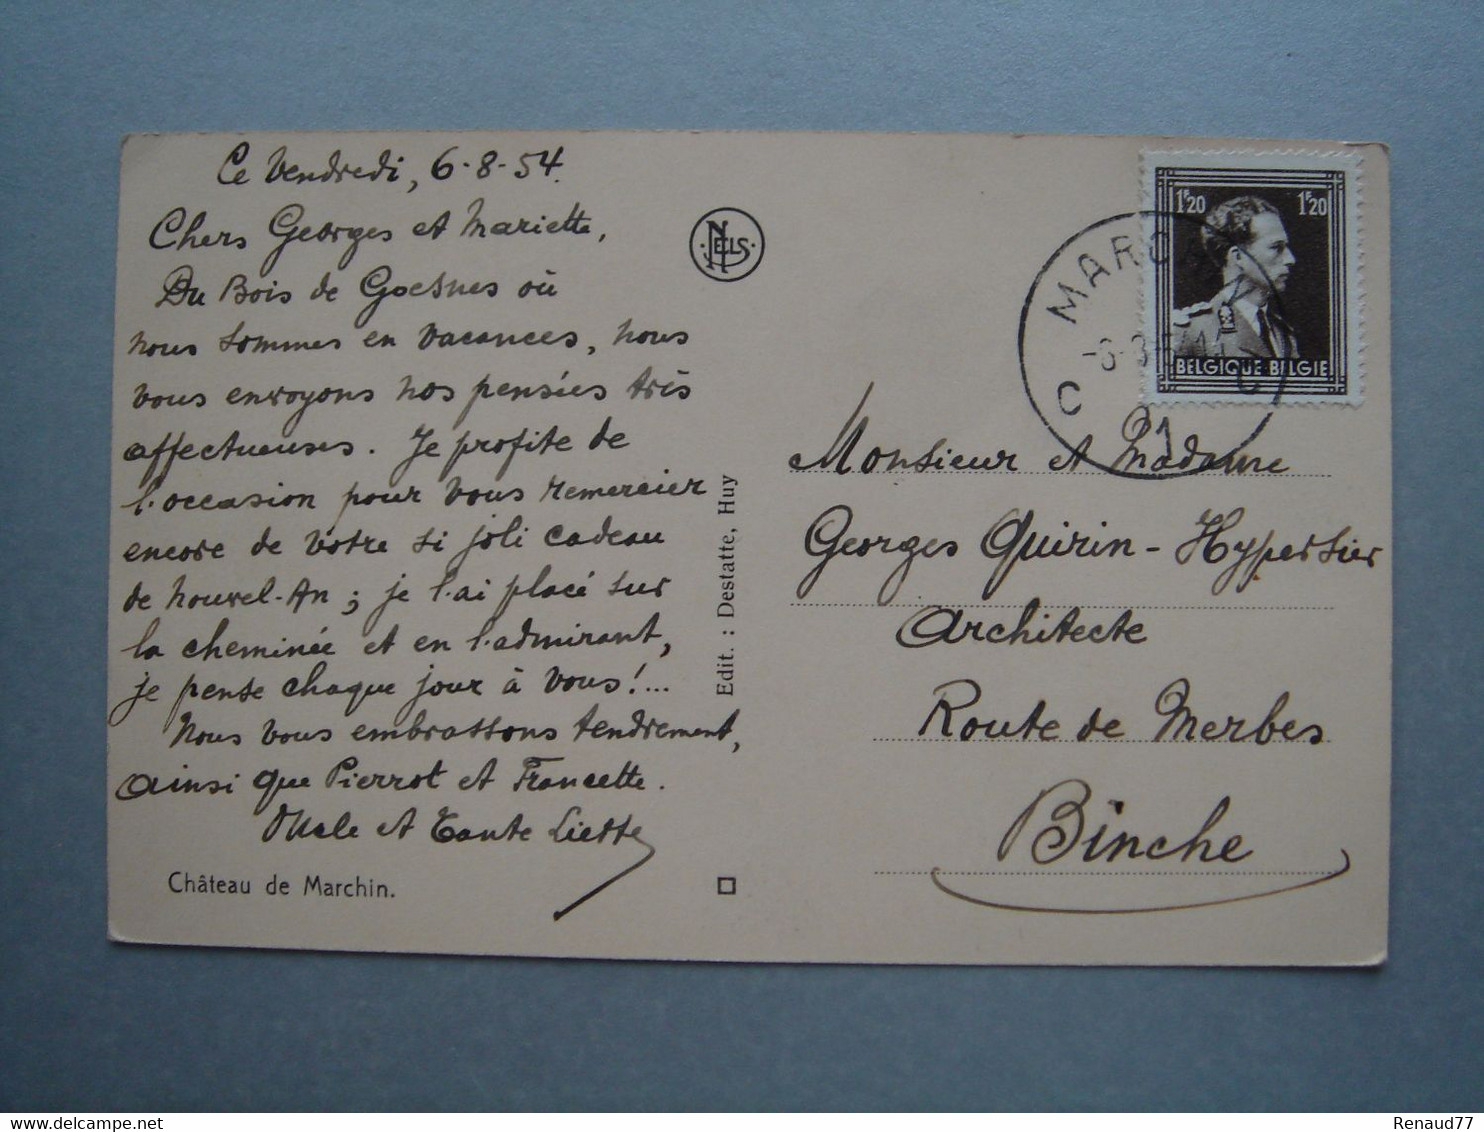 Ce Vendredi, 6-8-54.
Chers Georges et Mariette,
Du Bois de Goesnes où
nous sommes en vacances, nous
vous envoyons nos pensées très
affectueuses. Je profite de
l'occasion pour vous remercier
encore de votre si joli cadeau
de nouvel-An ; je l'ai placé sur
la cheminée et en l'admirant,
je pense chaque jour à vous !...
Nous vous embrassons tendrement,
ainsi que Pierrot et Francette.
et Tante Liette
Château de Marchin.
NELS
Edit. : Destatte, Huy
1F20 1F20
BELGIQUE BELGIE
MARC
C C
1
Monsieur et Madame
Georges Quirin - Hypersier
Architecte
Route de Merbes
Binche
delcampe.net
Renaud77